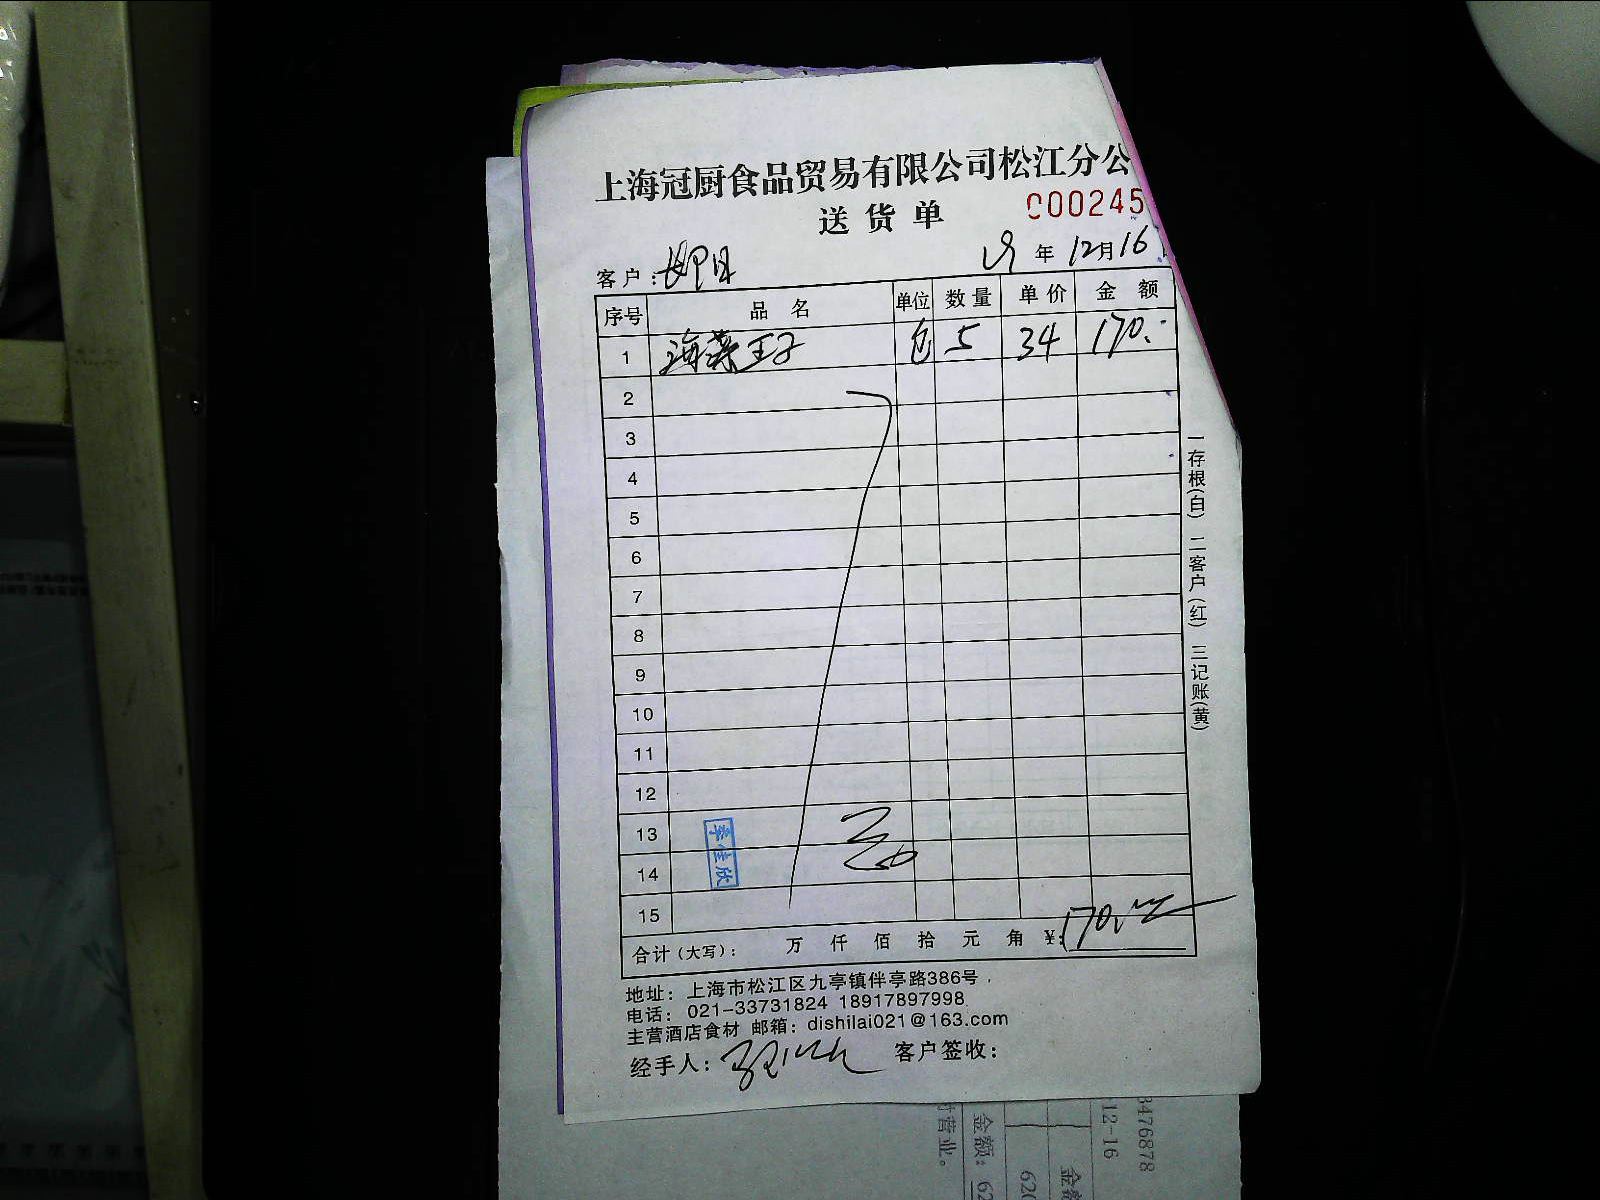 上海冠厨食品贸易有限公司松江分公
送货单 000245
客户: 年 12月16
序号 品名 单位 数量 单价 金额
1 海藻王子 包 5 34 170.-
2
3
4
5
6
7
8
9
10
11
12
13
李佳欣
14
15
合计(大写): 万 仟 佰 拾 元 角 ¥:170.
地址: 上海市松江区九亭镇伴亭路386号
电话: 021-33731824 18917897998
主营酒店食材 邮箱: dishilai021@163.com
经手人: 客户签收:
一存根(白) 二客户(红) 三记账(黄)
3476878
12-16
金额: 62
620
营业。